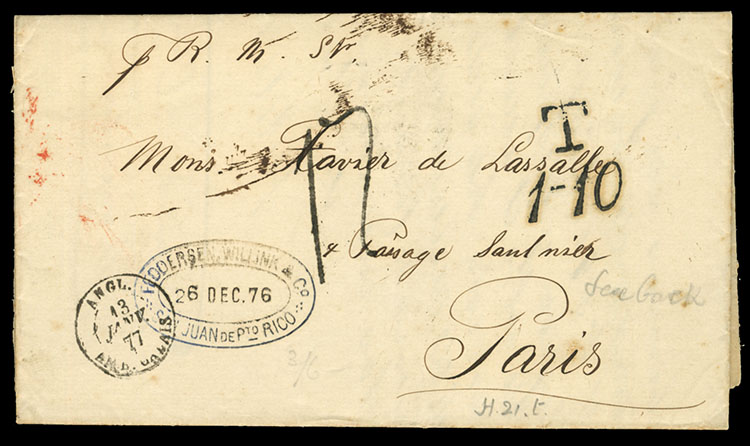 p R. M. Str.
T
1-10
Mons. Xavier de Lassalle
4 Passage Saulnier
Paris
FEDDERSEN, WILLINK & Co
26 DEC. 76
JUAN DE PTO RICO
ANGL.
13
JANV.
77
AMB. CALAIS
See back
3/
H. 21. t.